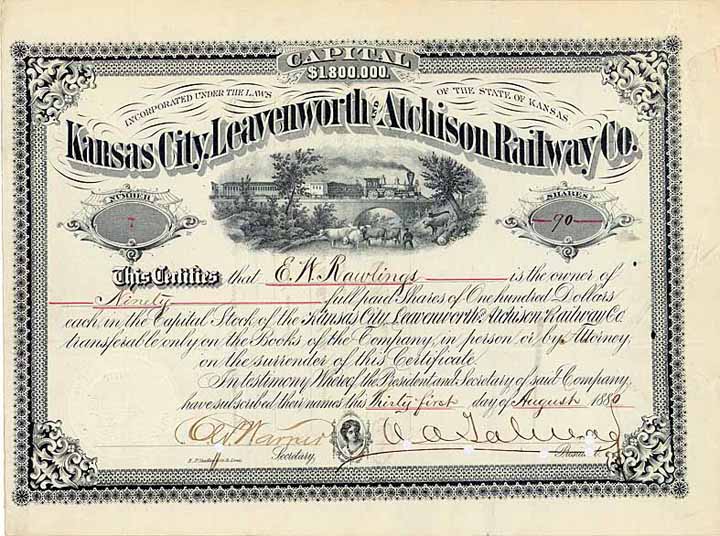 CAPITAL
$1.800.000.
INCORPORATED UNDER THE LAWS OF THE STATE OF KANSAS.
Kansas City, Leavenworth AND Atchison Railway Co.
NUMBER
7
SHARES
90
This Certifies that E. W. Rawlings is the owner of
Ninety full paid Shares of One hundred Dollars
each in the Capital Stock of the Kansas City, Leavenworth & Atchison Railway Co.
transferable only on the Books of the Company, in person or by Attorney,
on the surrender of this Certificate.
In testimony Whereof the President and Secretary of said Company,
have subscribed their names this Thirty first day of August 1880
Warner
Secretary,
President